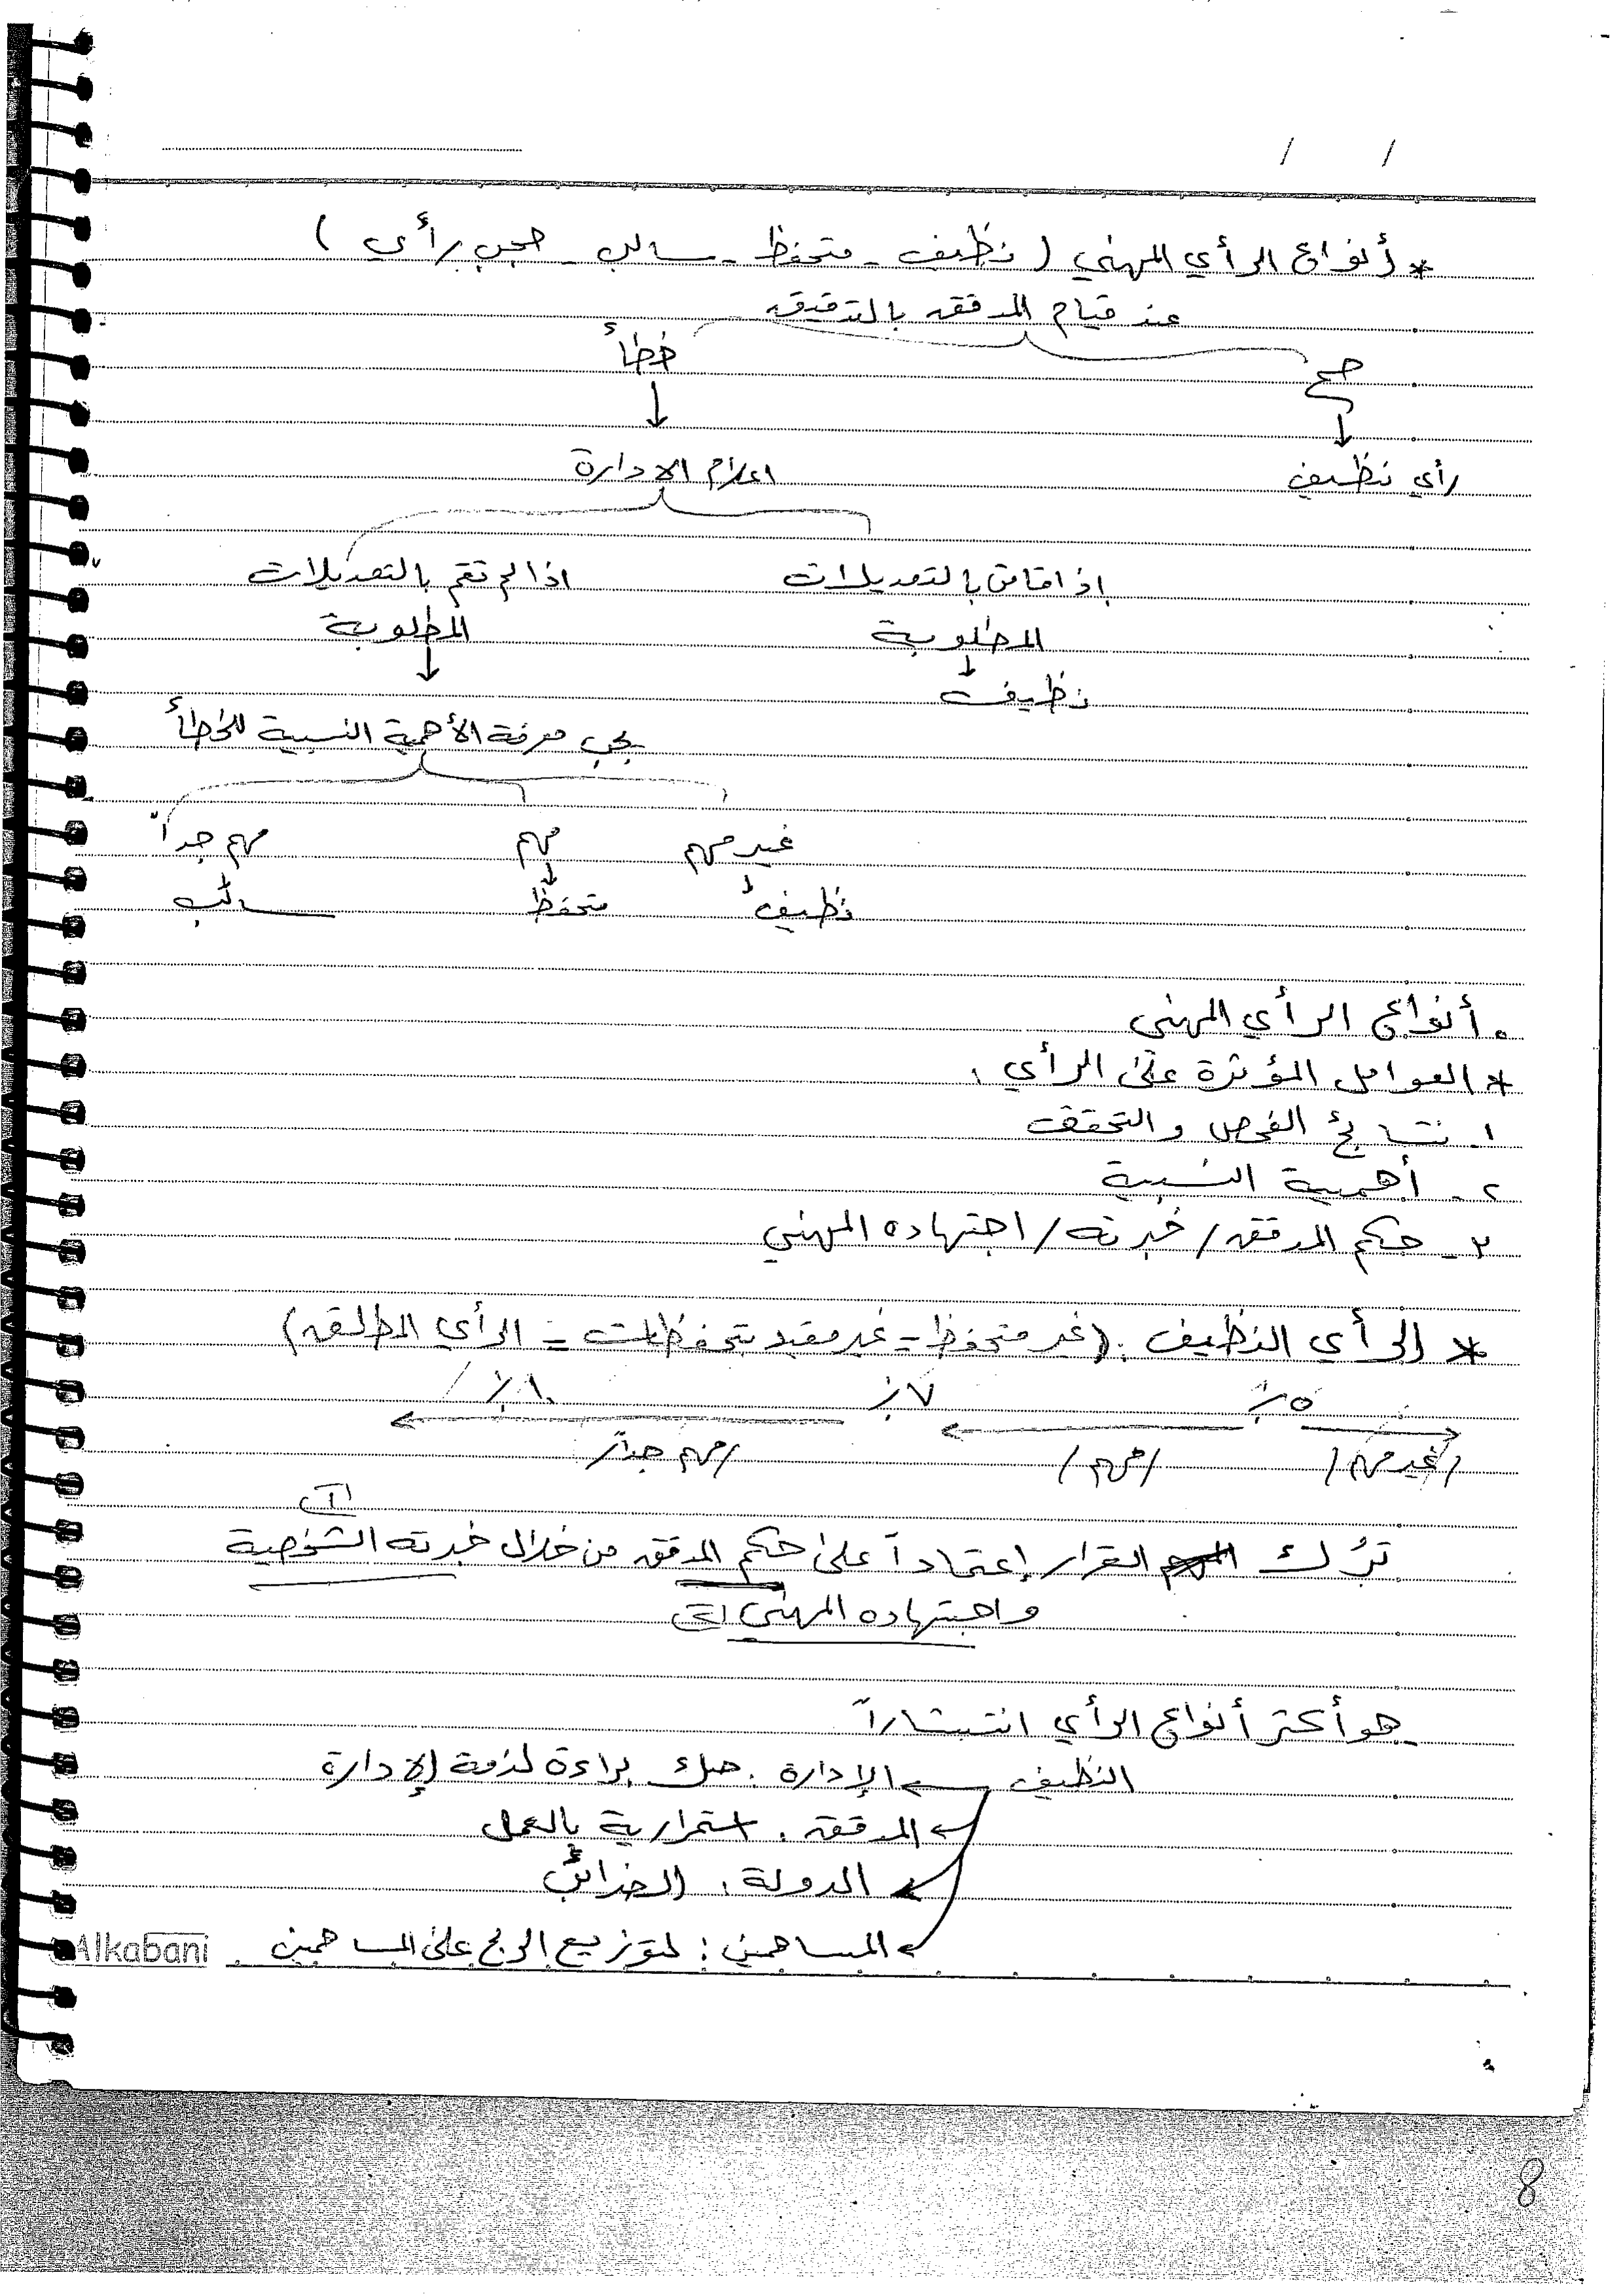 / /
* أنواع الرأي المهني ( نظيف - متحفظ - سالب - حجب رأي )
عند قيام المدقق بالتدقيق
صح خطأ
رأي نظيف اعلام الادارة
إذا قامت بالتعديلات اذا لم تقم بالتعديلات
المطلوبة المطلوبة
نظيف
يجب معرفة الأهمية النسبية للخطأ
غير مهم مهم مهم جداً
نظيف متحفظ سالب
. أنواع الرأي المهني
* العوامل المؤثرة على الرأي :
١. نتائج الفحص والتحقق
٢. أهمية النسبية
٣- حكم المدقق / خبرته / اجتهاده المهني
* الرأي النظيف : (غير متحفظ - غير مقيد بتحفظات - الرأي المطلق)
٥٪ ٧٪ ١٠٪
/غير مهم/ /مهم/ /مهم جداً/
ترك القرار إعتماداً على حكم المدقق من خلال خبرته الشخصية
واجتهاده المهني
هو أكثر أنواع الرأي انتشاراً
النظيف الإدارة : صك براءة لذمة الإدارة
المدقق : استمرارية بالعمل
الدولة : الضرائب
المساهمين : لتوزيع الربح على المساهمين
Alkabani
8